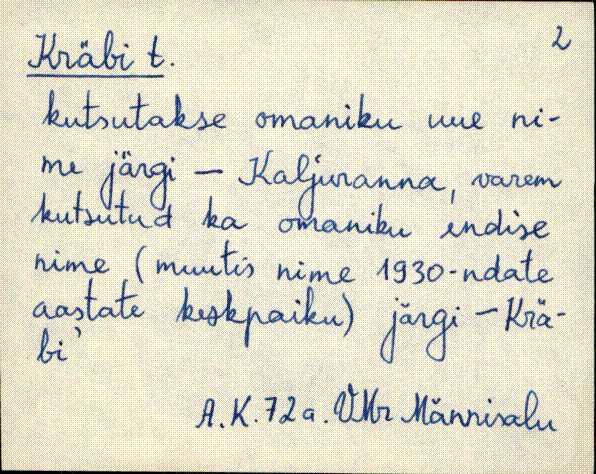 2
Kräbi t.
kutsutakse omaniku uue ni-
me järgi - Kaljuranna, varem
kutsutud ka omaniku endise
nime (muutis nime 1930-ndate
aastate keskpaiku) järgi - Krä-
bi'
A.K. 72 a. VMr Männisalu